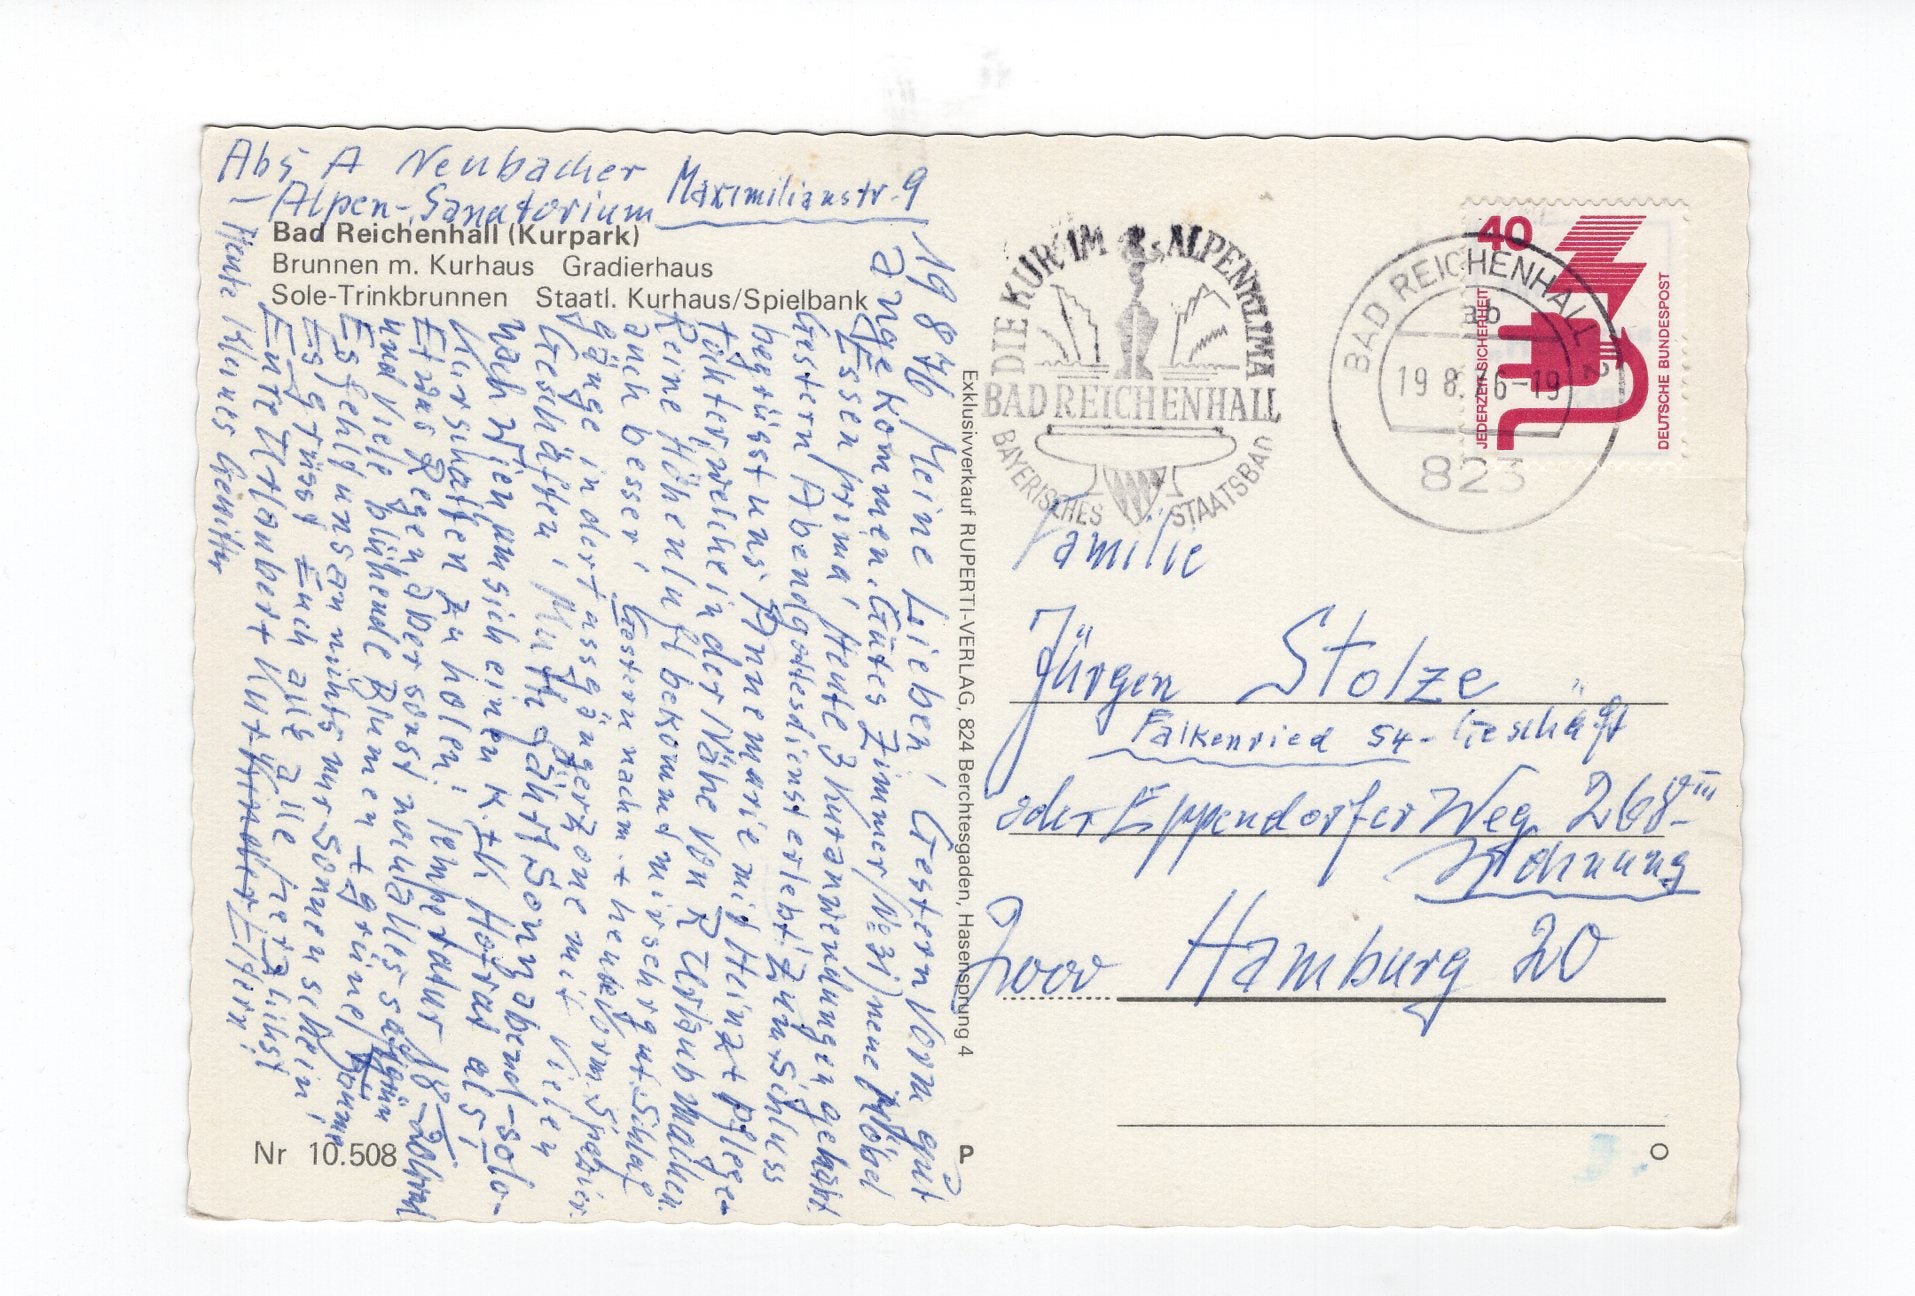 Abs A Neubacher Maximilianstr. 9
- Alpen-Sanatorium
Bad Reichenhall (Kurpark)
Brunnen m. Kurhaus Gradierhaus
Sole-Trinkbrunnen Staatl. Kurhaus/Spielbank
19 8 76 Meine Lieben! Gestern Vorm gut
angekommen. Gutes Zimmer (No 31) neue Möbel
Essen prima! Heute 3 Kuranwendungen gehabt.
Gestern Abendgottesdienst erlebt. Zum Schluss
begrüsst uns Annemarie mit Heinz + Pflege-
töchter, welche in der Nähe von R Urlaub machen.
Reine Höhenluft bekommt mir sehr gut. Schlaf
auch besser! Gestern nachm. + heute Vorm. Spazier-
gänge in der Fussgängerzone mit vielen
Geschäften! Mutti fährt Sonnabend - solo -
nach Wien um sich einen K.
Kurschatten zu holen! Temperatur 18-20 Grad
Etwas Regen aber sonst neutal
und viele blühende Blumen + grüne Bäume
Es fehlt uns an nichts nur Sonnenschein!
Es grüsst Euch alle alle herzlichst
Eure Urlauber + Kur-Kinder Eltern!
Heute kleines Gewitter
Nr 10.508
Exklusivverkauf RUPERTI-VERLAG, 824 Berchtesgaden, Hasensprung 4
P
DIE KUR IM ALPENKLIMA
BAD REICHENHALL
BAYERISCHES STAATSBAD
BAD REICHENHALL 2
ab
19 8.76-19
823
40
JEDERZEIT SICHERHEIT
DEUTSCHE BUNDESPOST
Familie
Jürgen Stolze
Falkenried 54 - Geschäft
oder Eppendorfer Weg 268 III -
Wohnung
2000 Hamburg 20
O